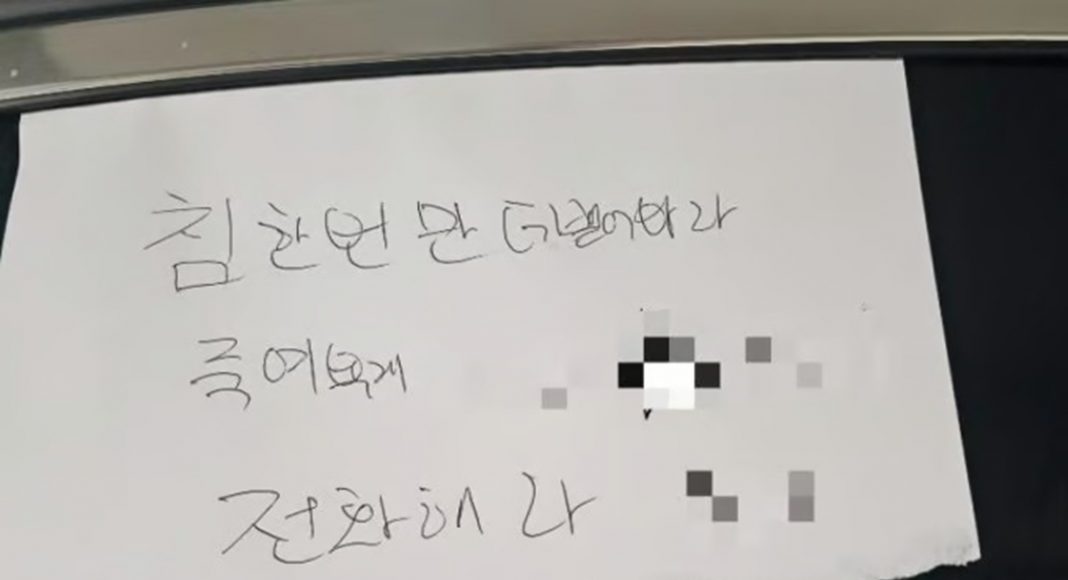 침 한번 만 더 뱉어봐라
죽여 볼게
전화해라